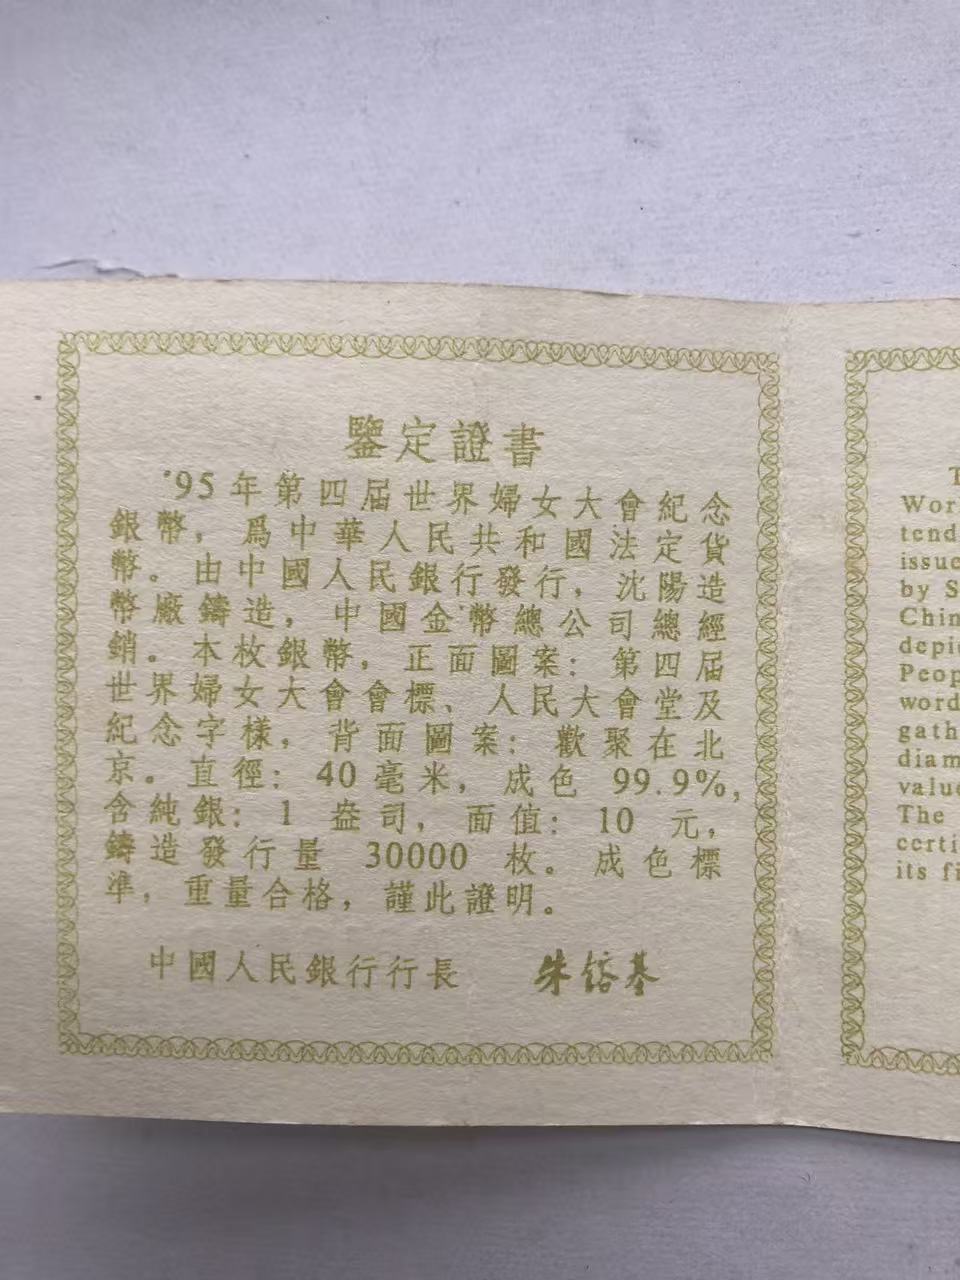 鑒定證書
'95年第四届世界婦女大會紀念
銀幣，爲中華人民共和國法定貨
幣。由中國人民銀行發行，沈陽造
幣廠鑄造，中國金幣總公司總經
銷。本枚銀幣，正面圖案：第四届
世界婦女大會會標、人民大會堂及
紀念字樣，背面圖案：歡聚在北
京。直徑：40毫米，成色 99.9%，
含純銀：1 盎司，面值：10 元，
鑄造發行量 30000 枚。成色標
準，重量合格，謹此證明。
中國人民銀行行長 朱鎔基
T
Wor
tend
issue
by S
Chin
depi
Peop
word
gath
diam
value
The
certi
its fi